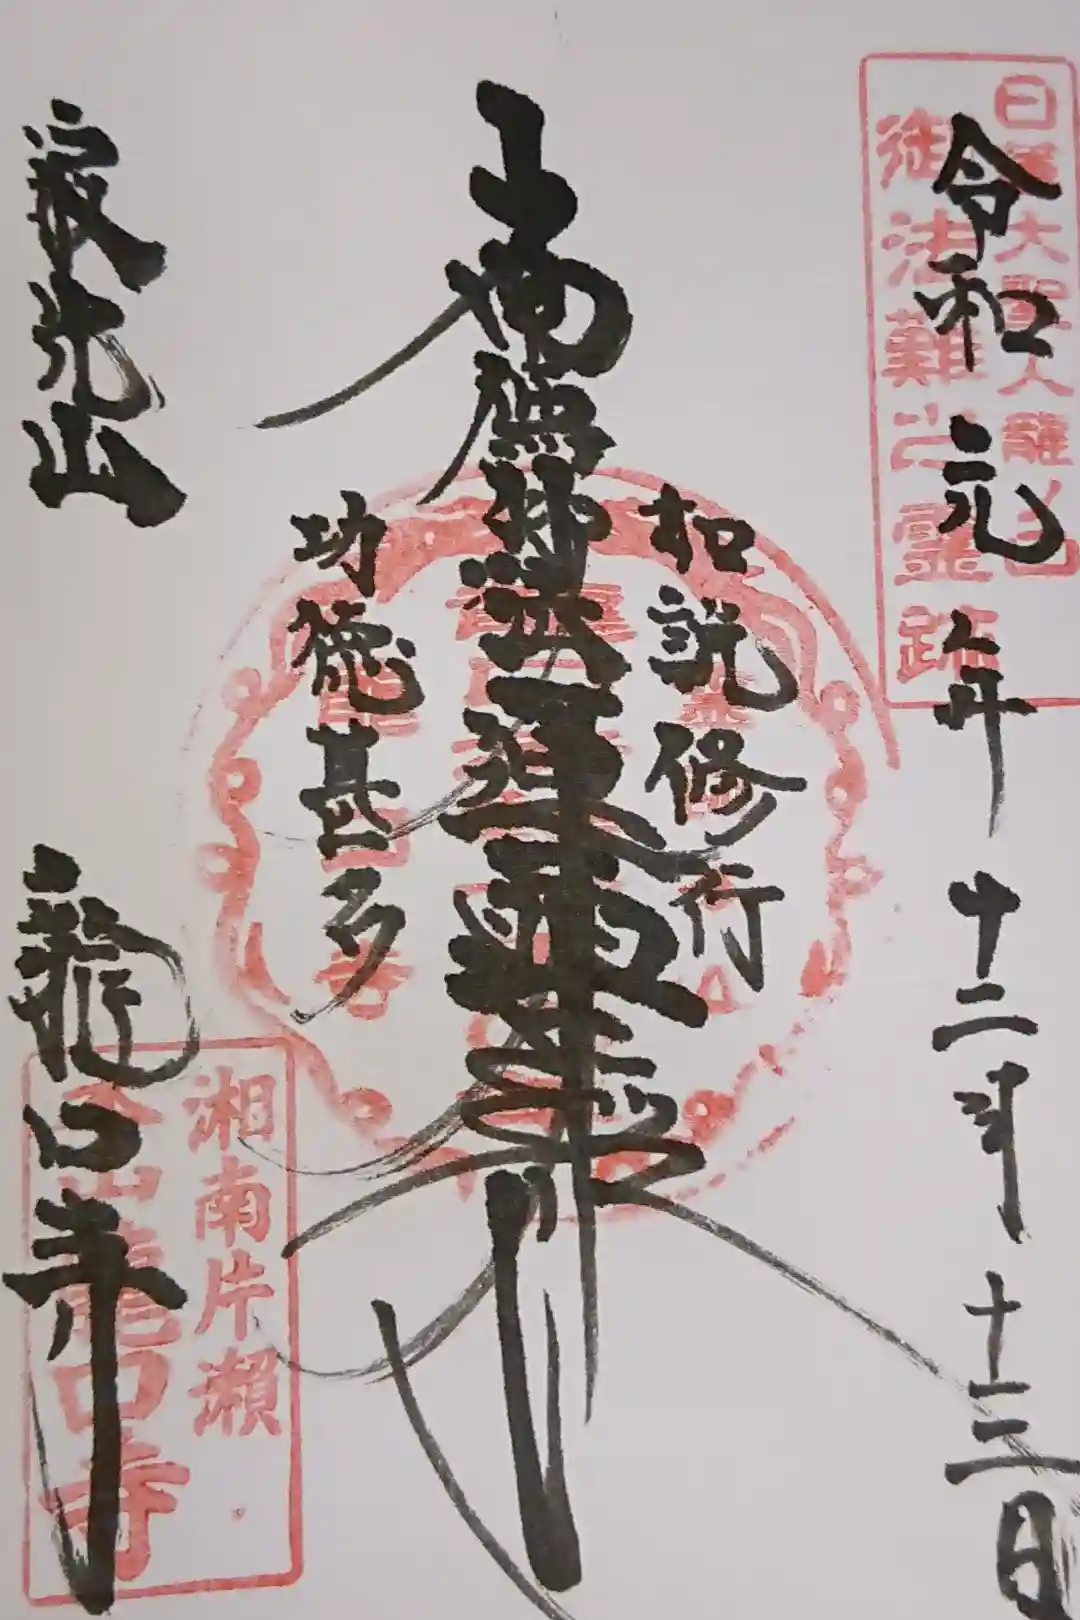 日蓮大聖人龍ノ口
御法難之霊跡
令和元年十二月十三日
如説修行
南無妙法蓮華経
功徳甚多
寂光山 龍口寺
湘南片瀬
本山龍口寺